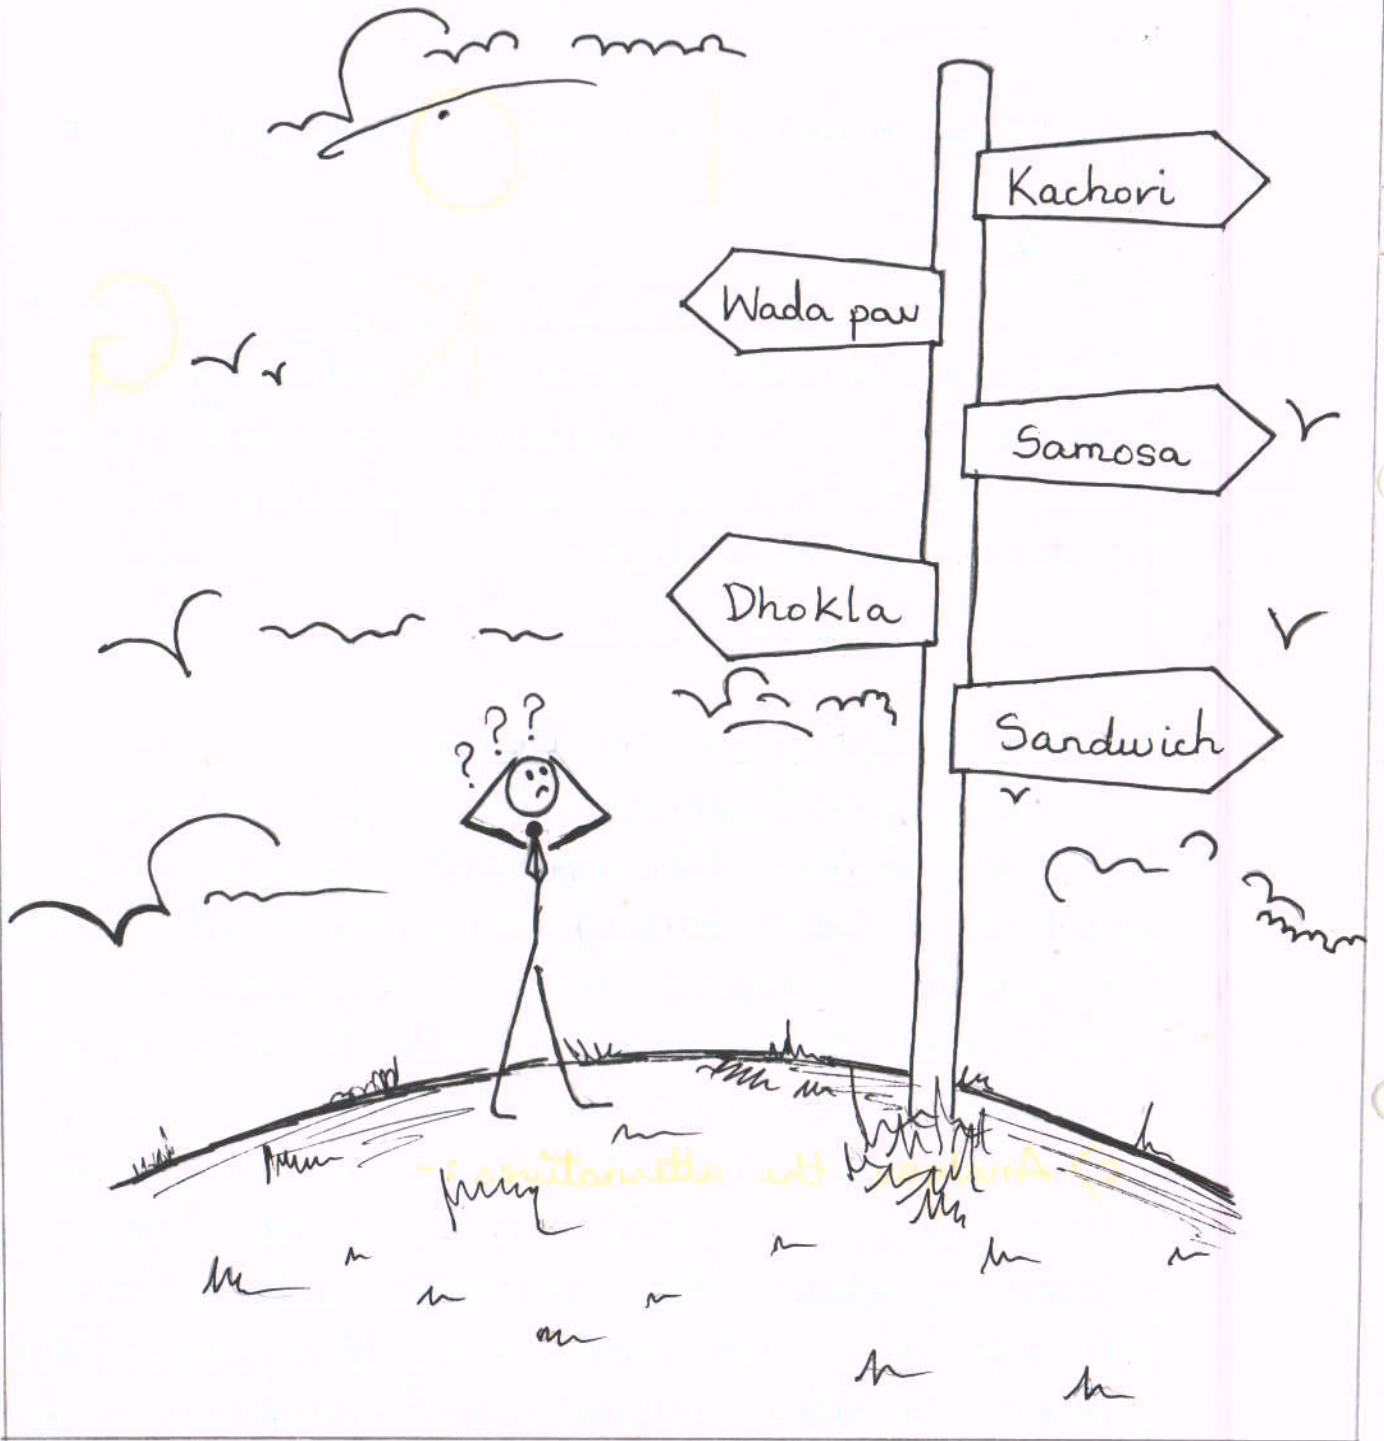 Kachori
Wada pav
Samosa
Dhokla
? ? ?
Sandwich